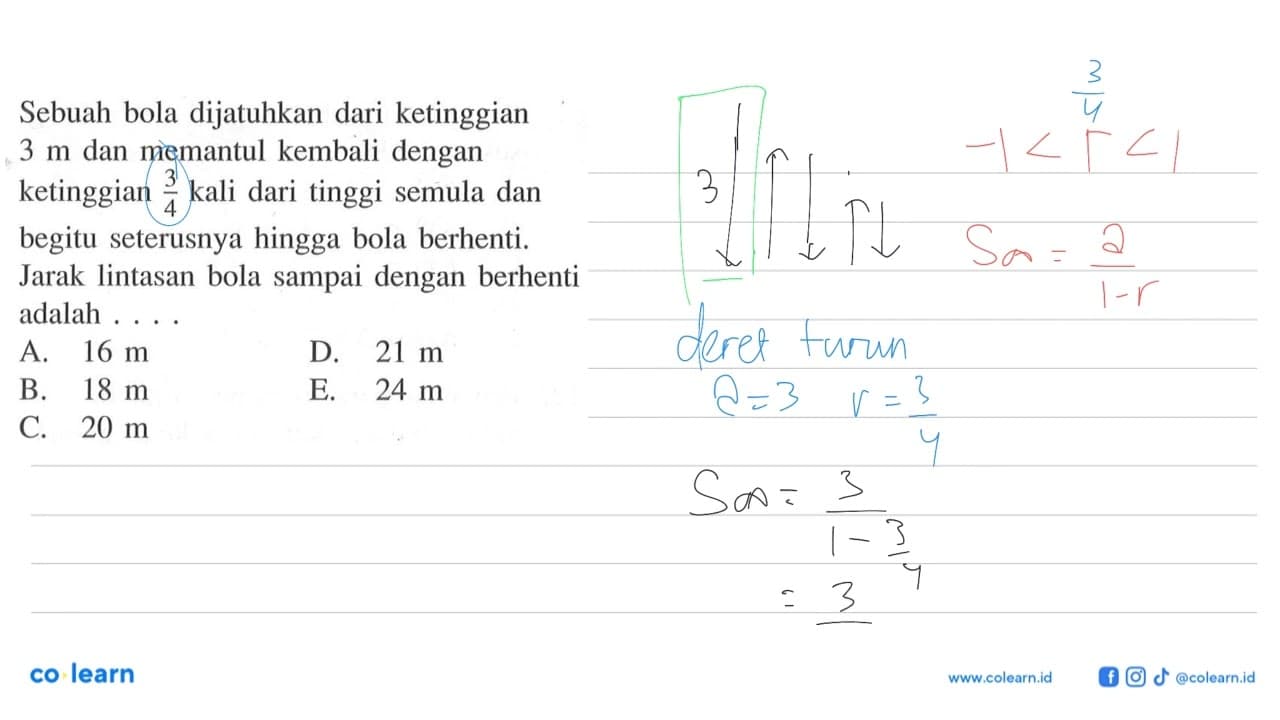 Sebuah bola dijatuhkan dari ketinggian
3 m dan memantul kembali dengan
ketinggian 3/4 kali dari tinggi semula dan
begitu seterusnya hingga bola berhenti.
Jarak lintasan bola sampai dengan berhenti
adalah . . . .
A. 16 m D. 21 m
B. 18 m E. 24 m
C. 20 m
3
3/4
-1 < r < 1
S∞ = a/(1-r)
deret turun
a=3 r = 3/4
S∞ = 3/(1 - 3/4)
= 3
co learn
www.colearn.id
@colearn.id